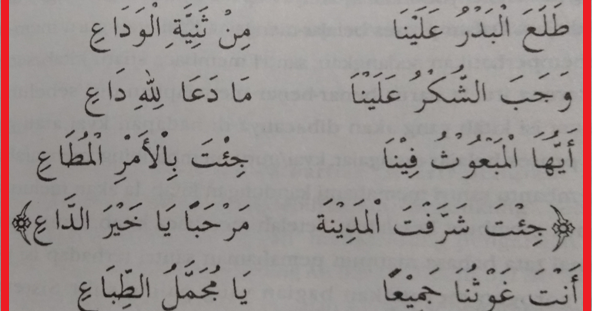 طَلَعَ الْبَدْرُ عَلَيْنَا مِنْ ثَنِيَّةِ الْوَدَاعِ
وَجَبَ الشُّكْرُ عَلَيْنَا مَا دَعَا لِلّٰهِ دَاعِ
أَيُّهَا الْمَبْعُوْثُ فِيْنَا جِئْتَ بِالْأَمْرِ الْمُطَاعِ
﴿جِئْتَ شَرَّفْتَ الْمَدِيْنَةَ مَرْحَبًا يَا خَيْرَ الدَّاعِ﴾
أَنْتَ غَوْثُنَا جَمِيْعًا يَا مُجَمَّلُ الطِّبَاعِ